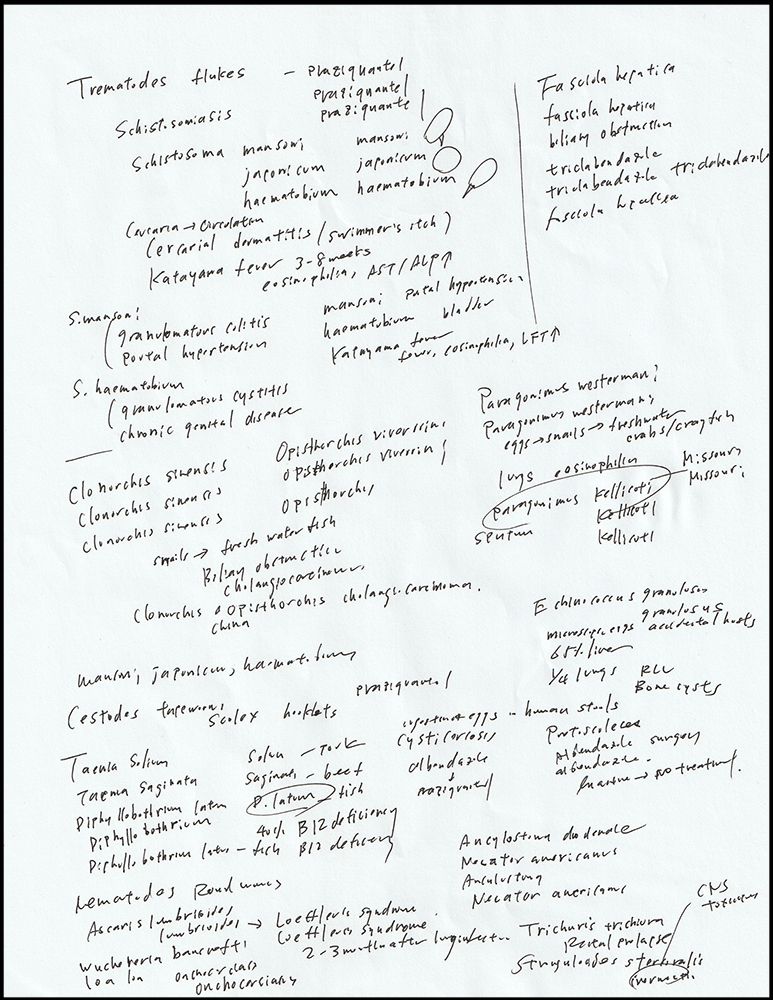 Trematodes flukes - praziquantel
praziquantel
praziquante
Schistosomiasis
Schistosoma mansoni mansoni
japonicum japonicum
haematobium haematobium
Cercaria → circulation
Cercarial dermatitis (swimmer's itch)
Katayama fever 3-8 weeks
eosinophilia, AST/ALP↑
S. mansoni
granulomatous colitis
portal hypertension
mansoni portal hypertension
haematobium bladder
Katayama fever
fever, eosinophilia, LFT↑
S. haematobium
granulomatous cystitis
chronic genital disease
Fasciola hepatica
fasciola hepatica
biliary obstruction
triclabendazole
triclabendazole triclabendazole
fasciola hepatica
Clonorchis sinensis Opisthorchis viverrini
Clonorchis sinensis Opisthorchis viverrini
Clonorchis sinensis Opisthorchis
snails → fresh water fish
Biliary obstruction
cholangiocarcinoma
Clonorchis Opisthorchis cholangiocarcinoma.
China
Paragonimus westermani
Paragonimus westermani
eggs → snails → freshwater
crabs/crayfish
lungs eosinophilia
Paragonimus Kellicoti Missouri
Missouri
sputum Kellicoti
Kellicoti
mansoni, japonicum, haematobium
Echinococcus granulosus
granulosus
microscopic eggs accidental hosts
65% liver
1/4 lungs RLL
Bone cysts
Protoscoleces
Albendazole surgery
albendazole.
Inactive → no treatment.
Cestodes tapeworms praziquantel
Scolex hooklets
Taenia Solium Solium - Pork
Taenia Saginata Saginata - beef
Diphyllobothrium latum D. latum - fish
Diphyllobothrium B12 deficiency
Diphyllobothrium latum - fish B12 deficiency
ingestion of eggs - human stools
cysticercosis
albendazole
praziquantel
Nematodes Roundworms
Ascaris lumbricoides
lumbricoides → Loeffler's syndrome
Loeffler's syndrome.
Wuchereria bancrofti 2-3 months after
loa loa onchocerciasis
onchocerciasis
Ancylostoma duodenale
Necator americanus
Ancylostoma
Necator americanus
Trichuris trichiura
Rectal prolapse
Strongyloides stercoralis
ivermectin
CNS